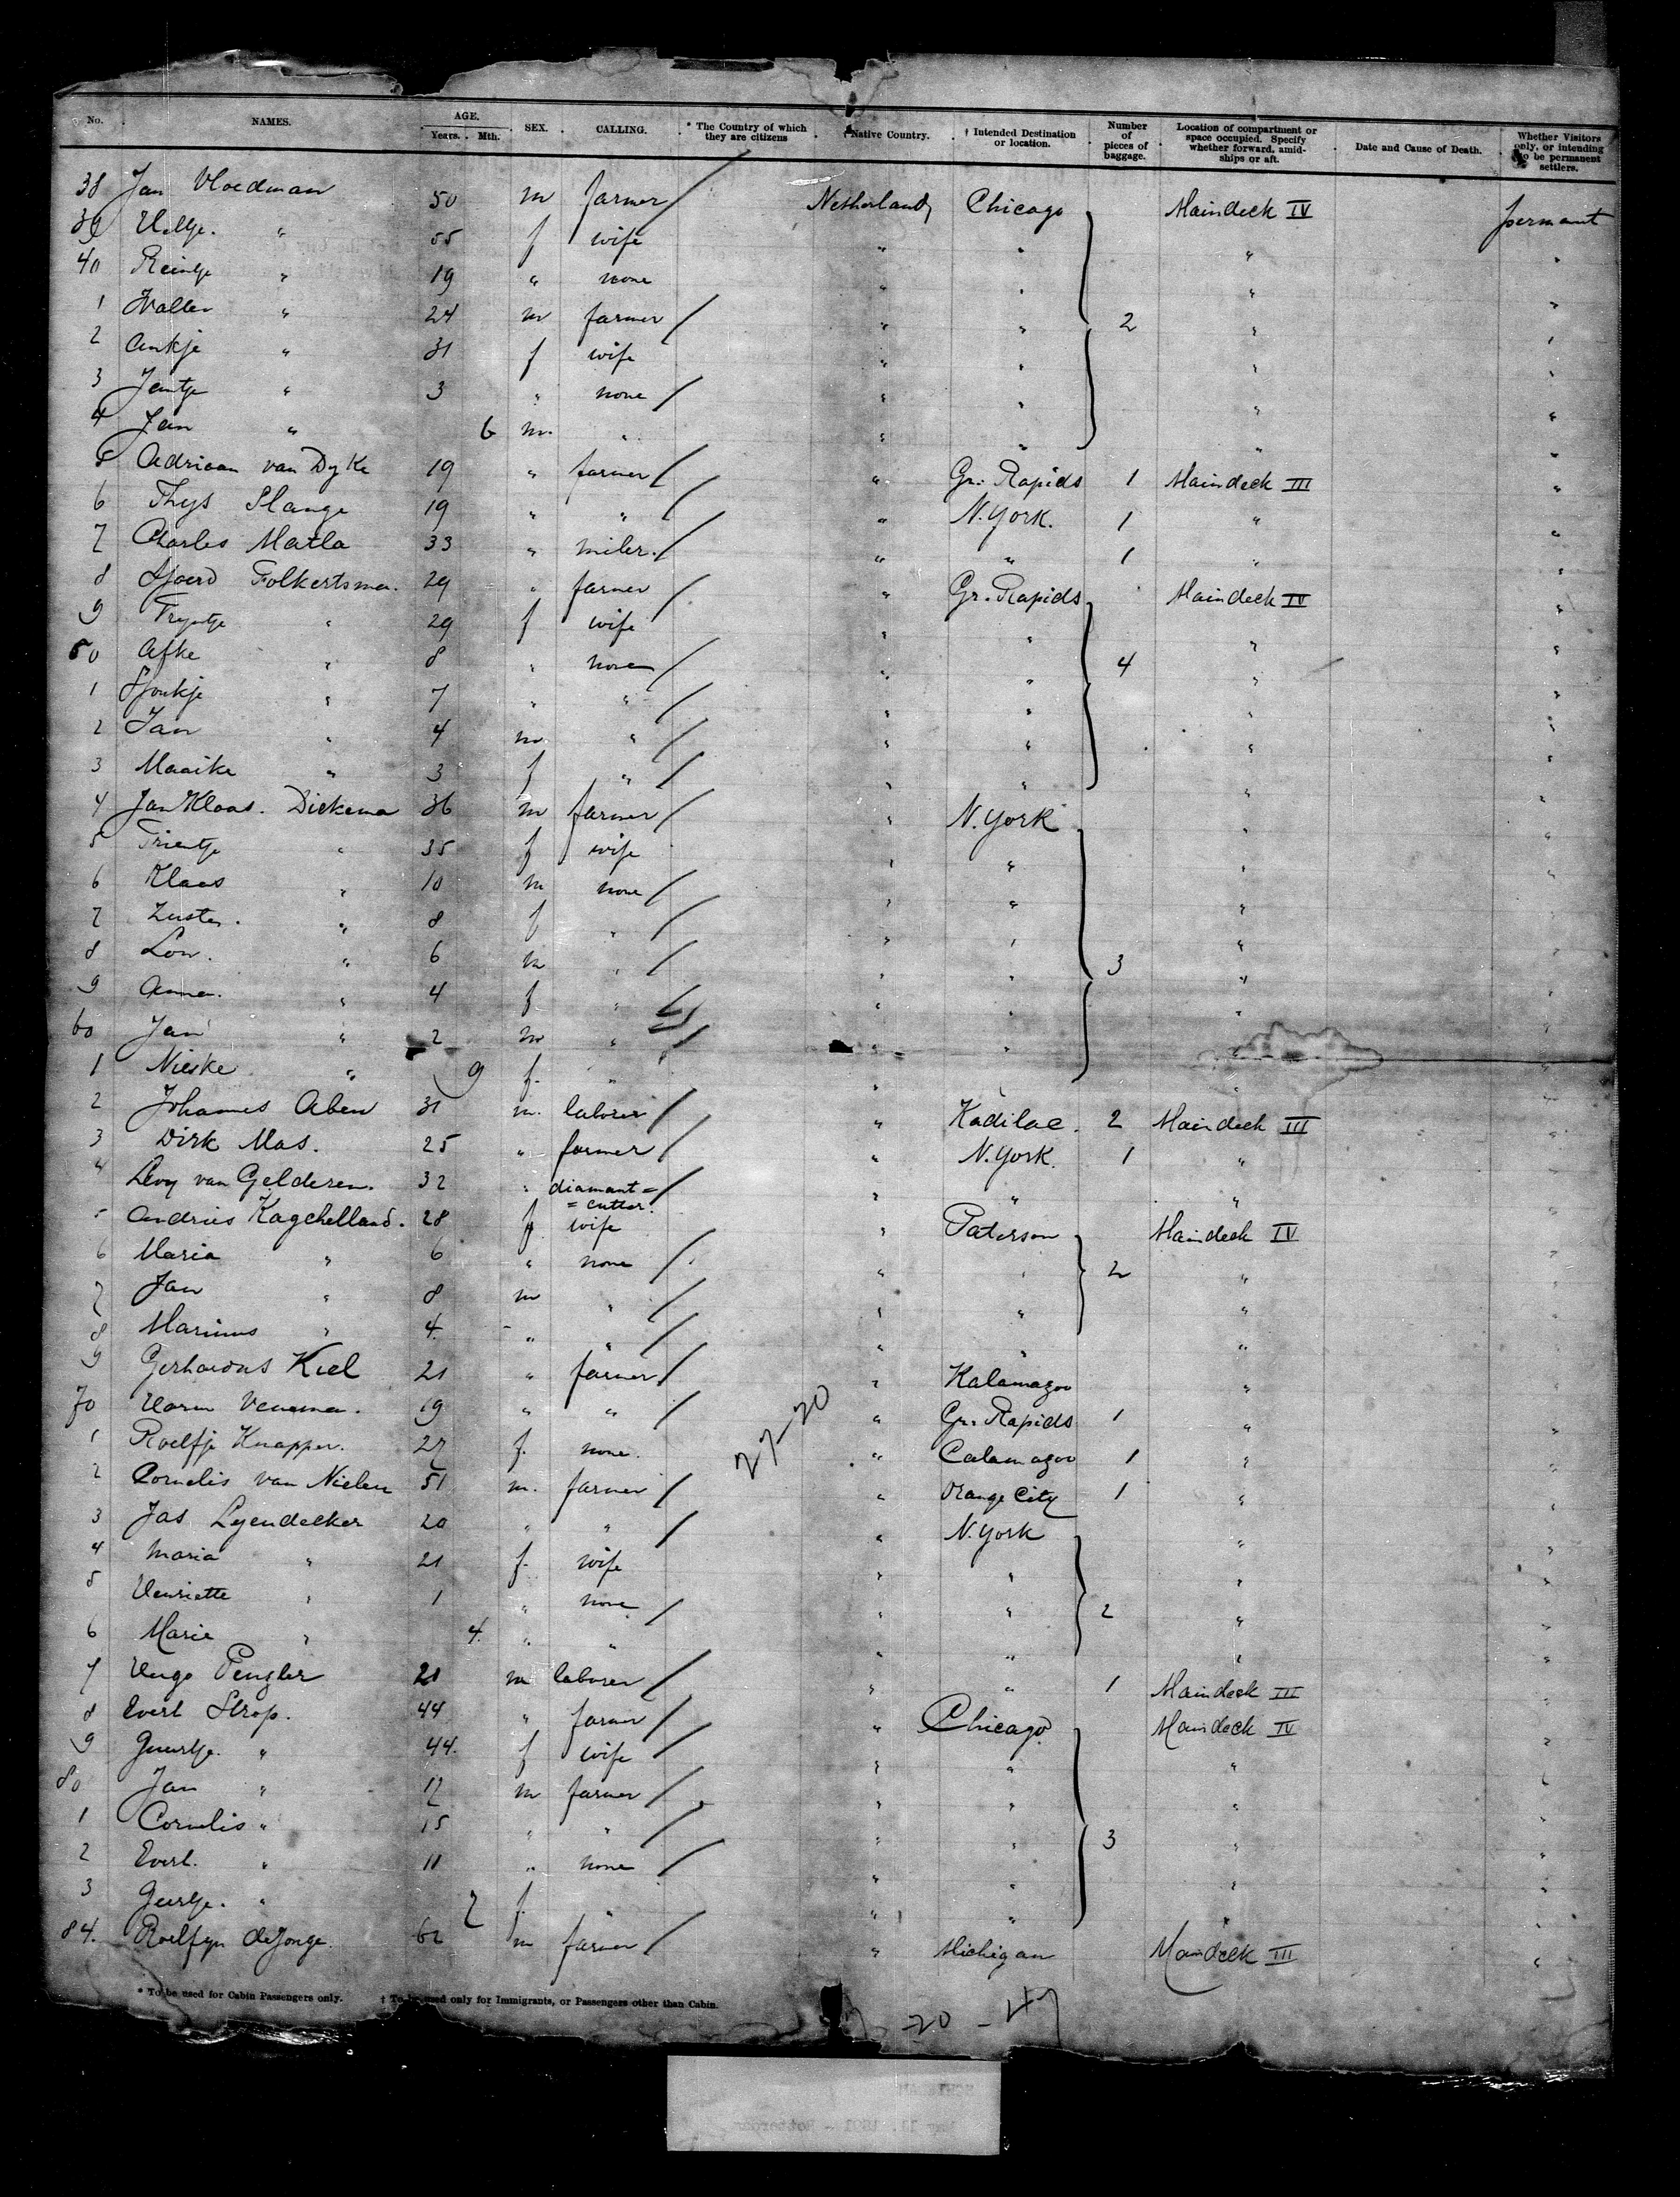 No. NAMES. AGE. Years. Mth. SEX. CALLING. * The Country of which they are citizens † Native Country. † Intended Destination or location. Number of pieces of baggage. Location of compartment or space occupied. Specify whether forward, amidships or aft. Date and Cause of Death. Whether Visitors only, or intending to be permanent settlers.
38 Jan Vloedman 50 m farmer Netherland Chicago Maindeck IV permant
39 " 55 f wife " " " "
40 Reintje " 19 " none " " " "
1 " 24 m farmer " " 2 " "
2 Ankje " 31 f wife " " " "
3 Jantje " 3 " none " " " "
4 Jan " 6 m. " " " " "
5 Adriaan van Dyke 19 " farmer " Gr. Rapids 1 Maindeck III "
6 Thys Slange 19 " " " N. York. 1 " "
7 Charles Matla 33 " miler. " " 1 " "
8 Sjoerd Folkertsma. 29 " farmer " Gr. Rapids Maindeck IV "
9 Tryntje " 29 f wife " " " "
50 Afke " 8 " none " " 4 " "
1 Sjoukje " 7 " " " " " "
2 Jan " 4 m " " " " "
3 Maaike " 3 f " " " " "
4 Jan Klaas. Diekema 36 m farmer " N. York " "
5 Trientje " 35 f wife " " " "
6 Klaas " 10 m none " " " "
7 " 8 f " " " " "
8 Lou. " 6 m " " " 3 " "
9 Anna. " 4 f " " " " "
60 Jan " 2 m " " " " "
1 Nieske " 9 f. " " " "
2 Johannes Aben 31 m. laborer " Kadilac. 2 Maindeck III "
3 Dirk Mas. 25 " farmer " N. York. 1 " "
4 Levy van Gelderen. 32 " diamant=
= cutter. " " " "
5 Andries Kagchelland. 28 f wife " Paterson Maindeck IV "
6 Maria " 6 " none " " 2 " "
7 Jan " 8 m " " " " "
8 Marinus " 4. " " " " " "
9 Gerhardus Kiel 21 " farmer " Kalamazoo " "
70 Harm Venema. 19 " " " Gr. Rapids 1 " "
1 Roelfje Knapper. 27 f. none. " Calamazoo 1 " "
27-20
2 Cornelis van Nielen 51 m. farmer " Orange City 1 " "
3 Jas Leyendecker 20 " " " N. York " "
4 Maria " 21 f. wife " " " "
5 Henriette " 1 " none " " 2 " "
6 Marie " 4. " " " " " "
7 Hugo Pengler 21 m laborer " " 1 Maindeck III "
8 Evert Strop. 44 " farmer " Chicago Maindeck IV "
9 Geertje. " 44. f wife " " " "
80 Jan " 17 m farmer " " " "
1 Cornelis " 15 " " " " 3 " "
2 Evert. " 11 " none " " " "
3 Geertje. " 7 f. " " " " "
84. Roelfyn de Jonge. 62 m farmer " Michigan Maindeck III "
* To be used for Cabin Passengers only. † To be used only for Immigrants, or Passengers other than Cabin.
20 - 47